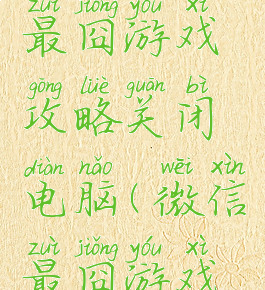 zuì jiǒng yóu xì
最囧游戏
gōng lüè guān bì
攻略关闭
diàn nǎo wēi xìn
电脑(微信
zuì jiǒng yóu xì
最囧游戏